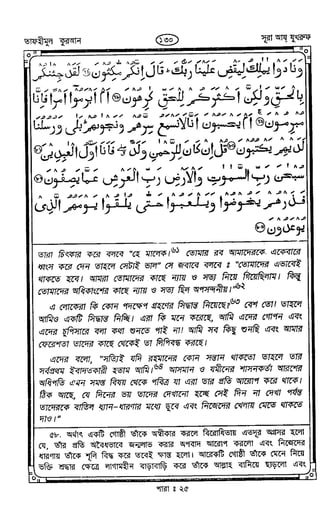 তাফহীমুল কুরআন
১৩০
সূরা আয্ যুখরুফ
وَنَادَوْا يٰمٰلِكُ لِيَقْضِ عَلَيْنَا رَبُّكَ ۖ قَالَ اِنَّكُمْ مّٰكِثُوْنَ ۝ لَقَدْ جِئْنٰكُمْ
بِالْحَقِّ وَلٰكِنَّ اَكْثَرَكُمْ لِلْحَقِّ كٰرِهُوْنَ ۝ اَمْ اَبْرَمُوْٓا اَمْرًا فَاِنَّا
مُبْرِمُوْنَ ۝ اَمْ يَحْسَبُوْنَ اَنَّا لَا نَسْمَعُ سِرَّهُمْ وَنَجْوٰىهُمْ ۖ بَلٰى وَرُسُلُنَا
لَدَيْهِمْ يَكْتُبُوْنَ ۝ قُلْ اِنْ كَانَ لِلرَّحْمٰنِ وَلَدٌ ۖ فَاَنَا اَوَّلُ الْعٰبِدِيْنَ ۝
سُبْحٰنَ رَبِّ السَّمٰوٰتِ وَالْاَرْضِ رَبِّ الْعَرْشِ عَمَّا يَصِفُوْنَ ۝
فَذَرْهُمْ يَخُوْضُوْا وَيَلْعَبُوْا حَتّٰى يُلٰقُوْا يَوْمَهُمُ الَّذِيْ
يُوْعَدُوْنَ ۝
তারা চিৎকার করে বলবে "হে মালেক।৬২ তোমার রব আমাদেরকে একেবারে
ধ্বংস করে দেন তাহলে সেটাই ভাল" সে জবাবে বলবে : "তোমাদের এভাবেই
থাকতে হবে। আমরা তোমাদের কাছে ন্যায় ও সত্য নিয়ে গিয়েছিলাম। কিন্তু
তোমাদের অধিকাংশের কাছে ন্যায় ও সত্য ছিল অপসন্দনীয়।"৬২
এ লোকেরা কি কোন পদক্ষেপ গ্রহণের সিদ্ধান্ত নিয়েছে?৬৩ বেশ তো! তাহলে
আমিও একটি সিদ্ধান্ত নিচ্ছি। এরা কি মনে করেছে, আমি এদের গোপন এবং
এদের চুপিসারে বলা কথা শুনতে পাই না। আমি সব কিছু শুনছি এবং আমার
ফেরেশতা তাদের কাছে থেকেই তা লিপিবদ্ধ করছে।
এদের বলো, "সত্যিই যদি রহমানের কোন সন্তান থাকতো তাহলে তার
সর্বপ্রথম ইবাদাতকারী হতাম আমি।৬৪ আসমান ও যমীনের শাসনকর্তা আরশের
অধিপতি এমন সমস্ত বিষয় থেকে পবিত্র যা এরা তার প্রতি আরোপ করে থাকে।
ঠিক আছে, যে দিনের ভয় তাদের দেখানো হচ্ছে সেই দিন না দেখা পর্যন্ত
তাদেরকে বাতিল ধ্যান-ধারণার মধ্যে ডুবে এবং নিজেদের খেলায় মেতে থাকতে
দাও।"
৫৮. অর্থাৎ একটি গোষ্ঠী তাঁকে অস্বীকার করলে বিরোধিতায় এতদূর অগ্রসর হলো
যে, তাঁর প্রতি অবৈধভাবে জন্মলাভ করার অপবাদ আরোপ করলো এবং নিজেদের
ধারণায় তাঁকে শূলি বিদ্ধ করে তবেই ক্ষান্ত হলো। আরেকটি গোষ্ঠী তাঁকে মেনে নিয়ে
ভক্তি শ্রদ্ধার ক্ষেত্রে লাগামহীন বাড়াবাড়ি করে তাঁকে আল্লাহ বানিয়ে ছাড়লো এবং
পারা : ২৫